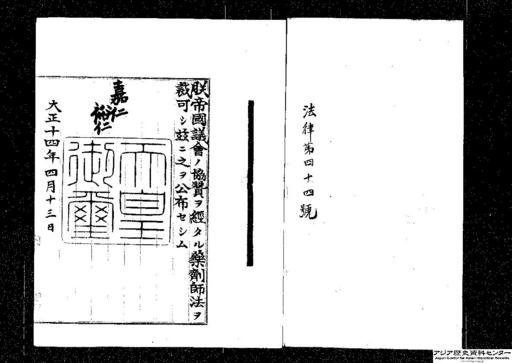 法律第四十四號
朕帝國議會ノ協贊ヲ經タル藥劑師法ヲ
裁可シ玆ニ之ヲ公布セシム
嘉仁
裕仁
天皇
御璽
大正十四年四月十三日
アジア歴史資料センター
Japan Center for Asian Historical Records